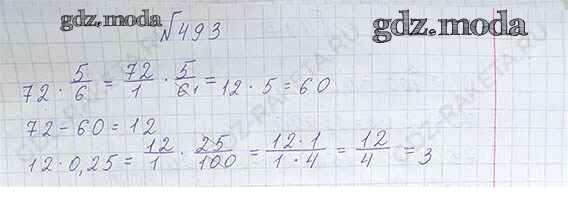 gdz.moda gdz.moda
№493
72 · 5/6 = 72/1 · 5/6₁ = 12 · 5 = 60
72 - 60 = 12
12 · 0,25 = 12/1 · 25/100 = 12·1/1·4 = 12/4 = 3
GDZ-RAKETA.RU